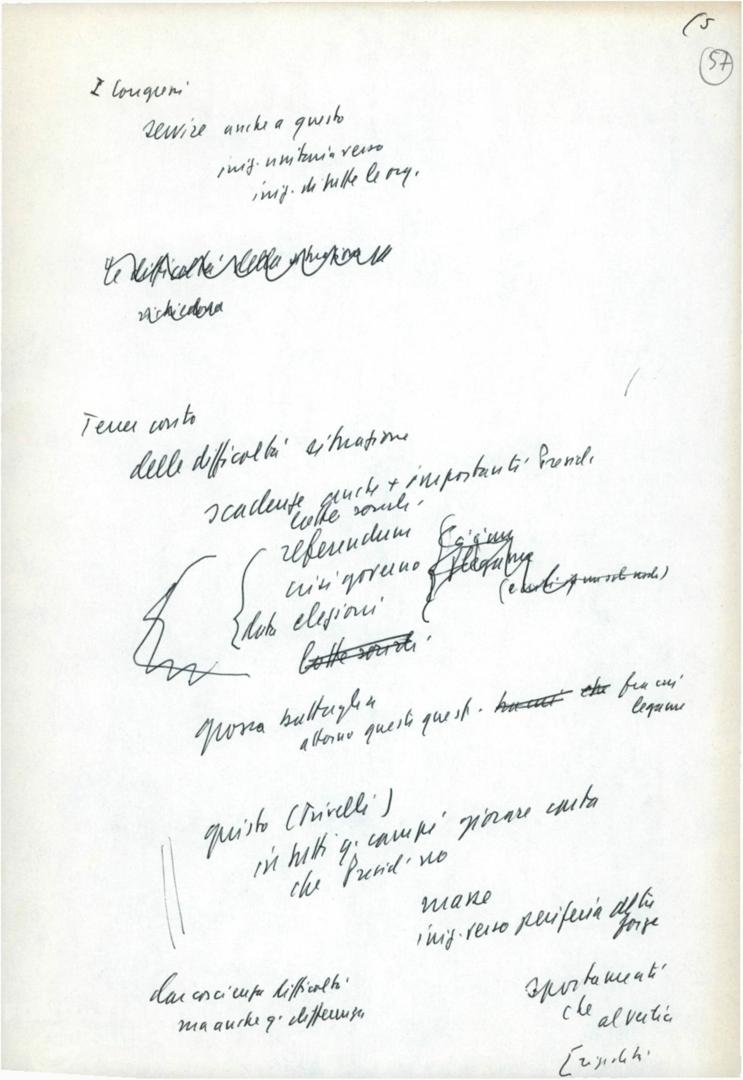 (5
57
I Congressi
servire anche a questo
iniz. unitaria verso
iniz. di tutte le org.
Le difficoltà della situazione
richiedono
Tener conto
delle difficoltà situazione
scadenze anche + importanti Presid.
lotte sociali
referendum
crisi governo
data elezioni
legame
lotte sociali
grossa battaglia
attorno queste quest. che fra cui
legame
giusto (Trivelli)
in tutti q. campi giocare carta
che Presid.
masse
iniz. verso periferia altre
forze
dar coscienza difficoltà
ma anche q. differenza
spostamenti
che al vertice